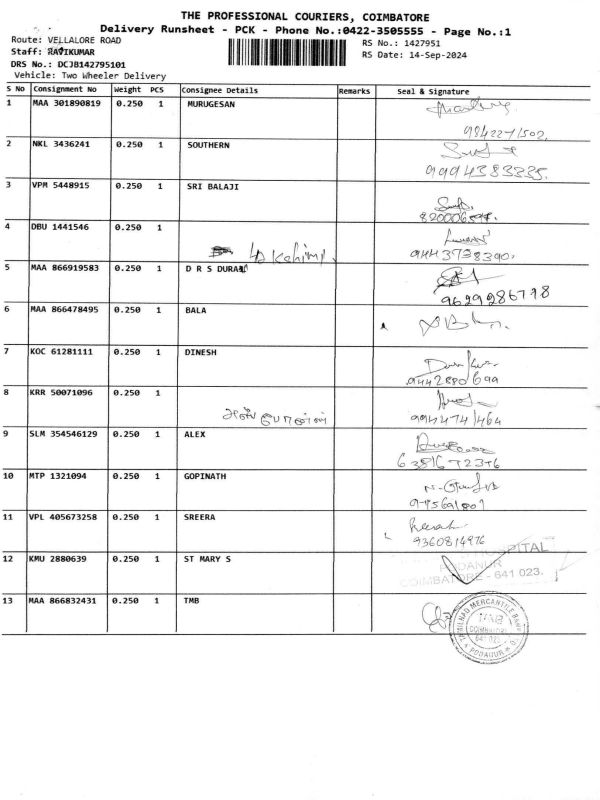 THE PROFESSIONAL COURIERS, COIMBATORE
Delivery Runsheet - PCK - Phone No.:0422-3505555 - Page No.:1
Route: VELLALORE ROAD
RS No.: 1427951
Staff: RAVIKUMAR
RS Date: 14-Sep-2024
DRS No.: DCJB142795101
Vehicle: Two Wheeler Delivery
S No Consignment No Weight PCS Consignee Details Remarks Seal & Signature
1 MAA 301890819 0.250 1 MURUGESAN
2 NKL 3436241 0.250 1 SOUTHERN
9994383335.
3 VPM 5448915 0.250 1 SRI BALAJI
4 DBU 1441546 0.250 1
9443738390.
5 MAA 866919583 0.250 1 D R S DURAI
9629286778
6 MAA 866478495 0.250 1 BALA
7 KOC 61281111 0.250 1 DINESH
9442880699
8 KRR 50071096 0.250 1
9944741464
9 SLM 354546129 0.250 1 ALEX
10 MTP 1321094 0.250 1 GOPINATH
11 VPL 405673258 0.250 1 SREERA
9360814976
HOSPITAL
12 KMU 2880639 0.250 1 ST MARY S
PODANUR
COIMBATORE - 641 023.
13 MAA 866832431 0.250 1 TMB
TAMILNAD MERCANTILE BANK
COIMBATORE
641 023
PODANUR